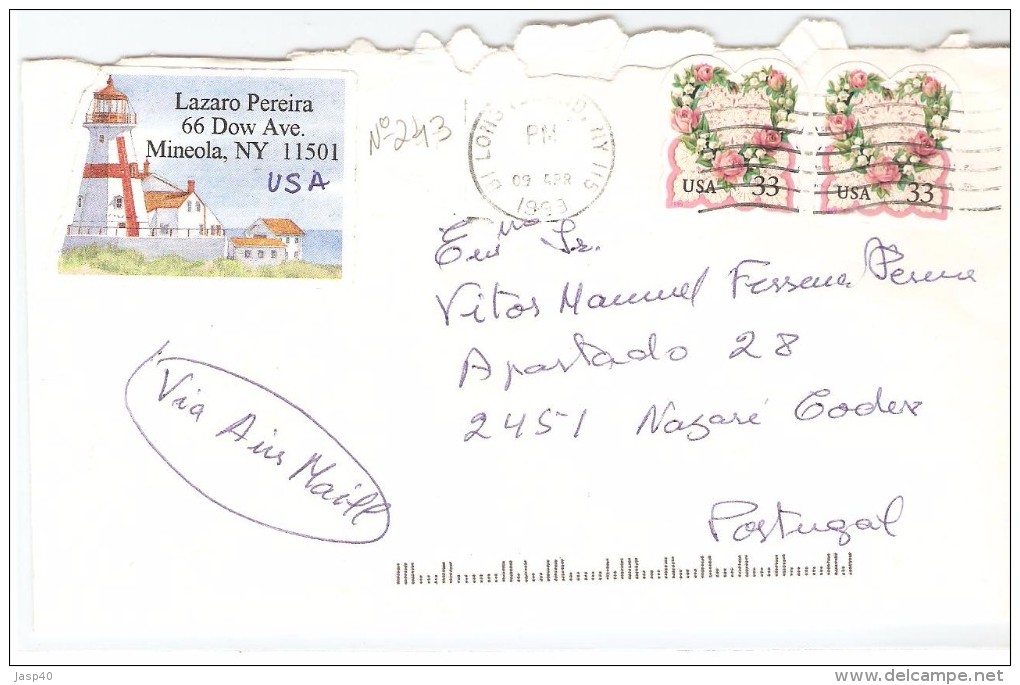 Lazaro Pereira
66 Dow Ave.
Mineola, NY 11501
USA
Nº 243
LONG NY 115
PM
09 APR
USA 33
USA 33
Exmo Sr.
Vitor Manuel
Apartado 28
2451 Nazaré Codex
Portugal
Via Air Maill
Jasp40
www.delcampe.net